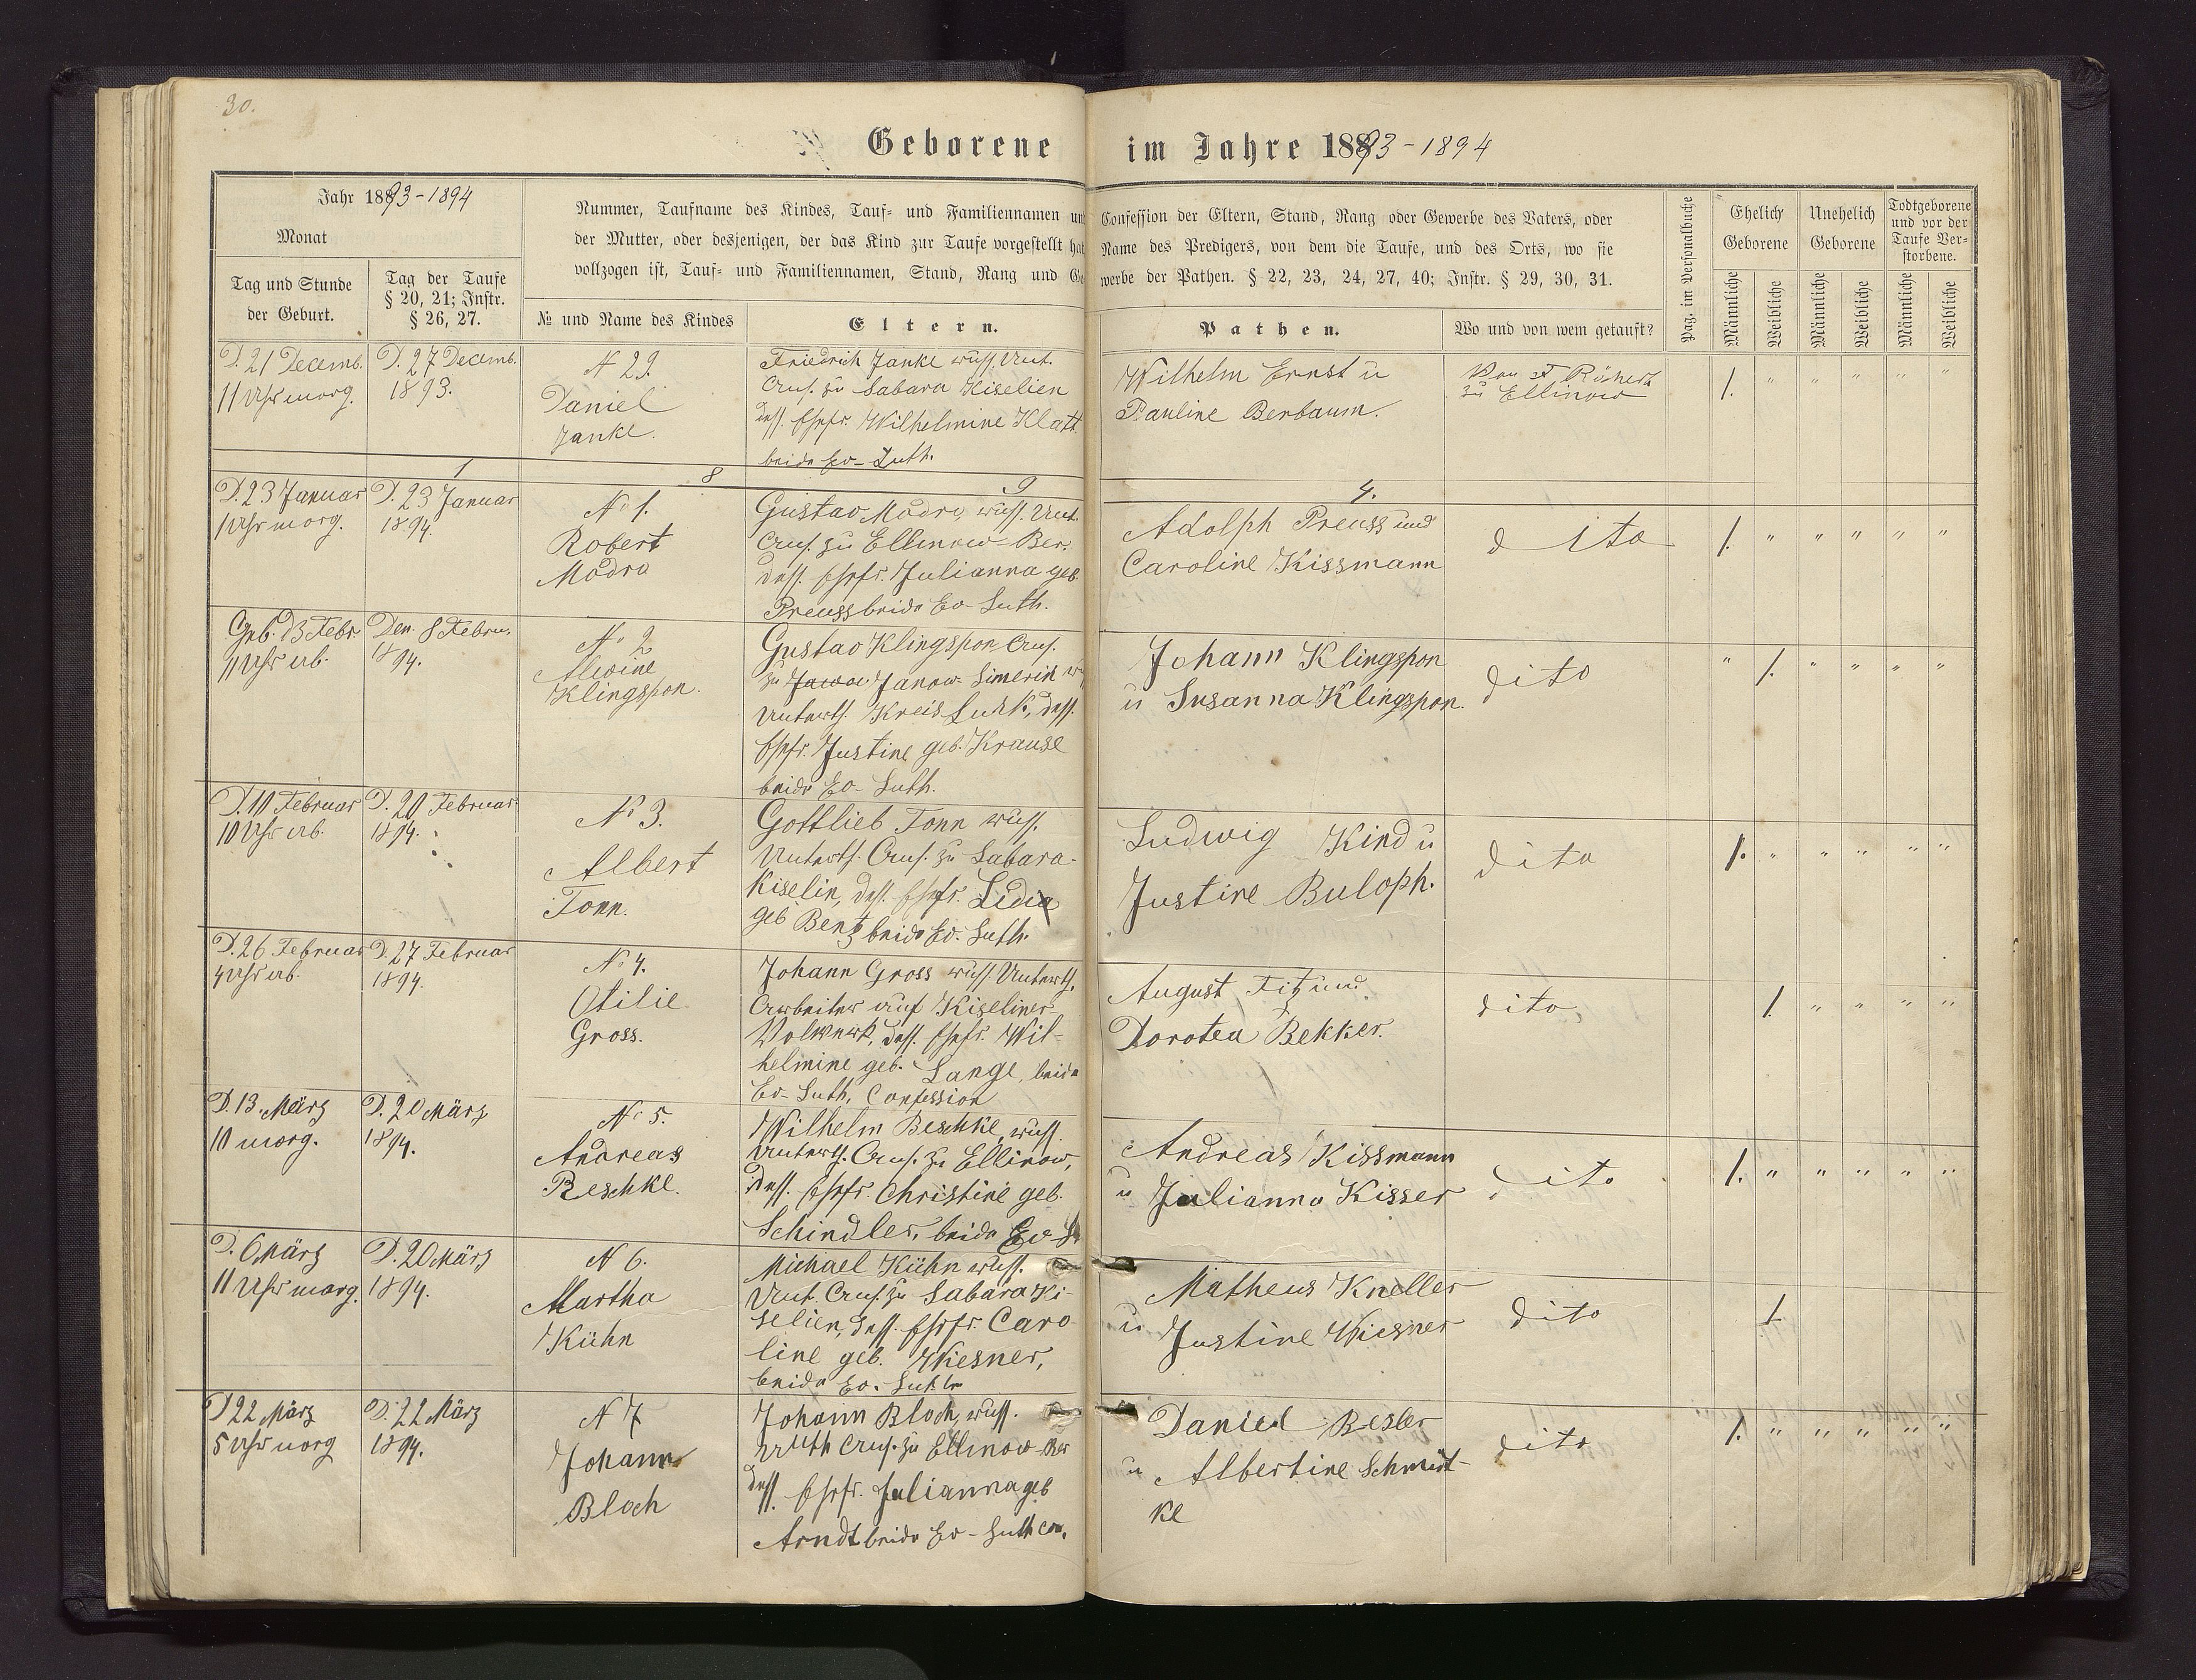 30.
Geborene im Jahre 1893-1894
Jahr 1893-1894
Monat
Tag und Stunde
der Geburt.
Tag der Taufe
§ 20, 21; Instr.
§ 26, 27.
Nummer, Taufname des Kindes, Tauf- und Familiennamen un
der Mutter, oder desjenigen, der das Kind zur Taufe vorgestellt ha
vollzogen ist, Tauf- und Familiennamen, Stand, Rang und Ge
№ und Name des Kindes
Eltern.
Confession der Eltern, Stand, Rang oder Gewerbe des Vaters, oder
Name des Predigers, von dem die Taufe, und des Orts, wo sie
werbe der Pathen. § 22, 23, 24, 27, 40; Instr. § 29, 30, 31.
Pathen.
Wo und von wem getauft?
Pag. im Personalbuche
Ehelich
Geborene
Unehelich
Geborene
Todtgeborene
und vor der
Taufe Ver-
storbene.
Männliche
Weibliche
Männliche
Weibliche
Männliche
Weibliche
D. 21 Decemb.
11 Uhr morg.
D. 27 Decemb.
1893.
N 29.
Daniel
Janke.
Friedrich Janke russ. Unt.
Col. zu Sabara Kiselien
dess. Ehefr. Wilhelmine Klatt
beide Ev-Luth.
Wilhelm Ernst u
Pauline Berbaum.
zu Ellinow
1.
1
8
9
4.
D. 23 Januar
1 Uhr morg.
D. 23 Januar
1894.
No 1.
Robert
Modro
Gustav Modro, russ. Unt.
Col. zu Ellinow-Ber.
dess. Ehefr. Julianna geb.
Preuss beide Ev-Luth.
Adolph Preuss und
Caroline Kissmann
dito
1.
Geb. D 3 Febr
11 Uhr ab.
Den 8 Febru.
1894.
No 2
Alwine
Klingspon.
Gustav Klingspon Col.
zu Janow-Simerin
Unterth. Kreis Luzk, dess.
Ehefr. Justine geb. Krause
beide Ev-Luth.
Johann Klingspon
u Susanna Klingspon.
dito
1.
D. 10 Februar
10 Uhr ab.
D. 20 Februar
1894.
No 3.
Albert
Tonn.
Gottlieb Tonn russ.
Unterth. Col. zu Sabara-
Kiselin, dess. Ehefr. Lidia
geb Bentz beide Ev. Luth.
Ludwig Kind u
Justine Buloph.
dito
1.
D. 26 Februar
4 Uhr ab.
D. 27 Februar
1894.
No 4.
Otilie
Gross.
Johann Gross russ. Unterth.
Arbeiter auf Kiseliner
Volwerk, dess. Ehefr. Wil-
helmine geb. Lange, beide
Ev-Luth. Confession
August Fitz und
Dorotea Bekker.
dito
1.
D. 13. März
10 morg.
D. 20 März
1894.
No 5.
Andreas
Reschke.
Wilhelm Reschke, russ.
Unterth. Col. zu Ellinow,
dess. Ehefr. Christine geb.
Schindler, beide Ev-L
Andreas Kissmann
u Julianna Kisser
dito
1.
D. 6 März
11 Uhr morg.
D. 20 März
1894.
N 6.
Martha
Kühn
Michael Kühn russ.
Unt. Col. zu Sabara Ki-
selien, dess. Ehefr. Caro
line geb. Wiesner,
beide Ev. Luth
Matheus Kneller
u Justine Wiesner
dito
1
D 22 März
5 Uhr morg
D. 22 März
1894.
N 7
Johann
Bloch
Johann Bloch, russ.
Unth Col. zu Ellinow Ber
dess. Ehefr. Julianna geb
Arndt beide Ev-Luth Con.
Daniel Besler
u Albertine Schmidt-
ke
dito
1.